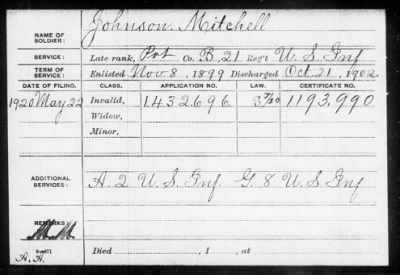 NAME OF SOLDIER: Johnson Mitchell
SERVICE: Late rank, Pvt Co. B, 21 Reg't U.S. Inf
TERM OF SERVICE: Enlisted Nov 8, 1899 Discharged Oct. 21, 1902.
DATE OF FILING. CLASS. APPLICATION NO. LAW. CERTIFICATE NO.
1920 May 22 Invalid, 1.432.696 1193.990
Widow,
Minor,
ADDITIONAL SERVICES: A 2 U.S. Inf G 8 U.S. Inf
REMARKS:
Died , 1 , at
A.A.